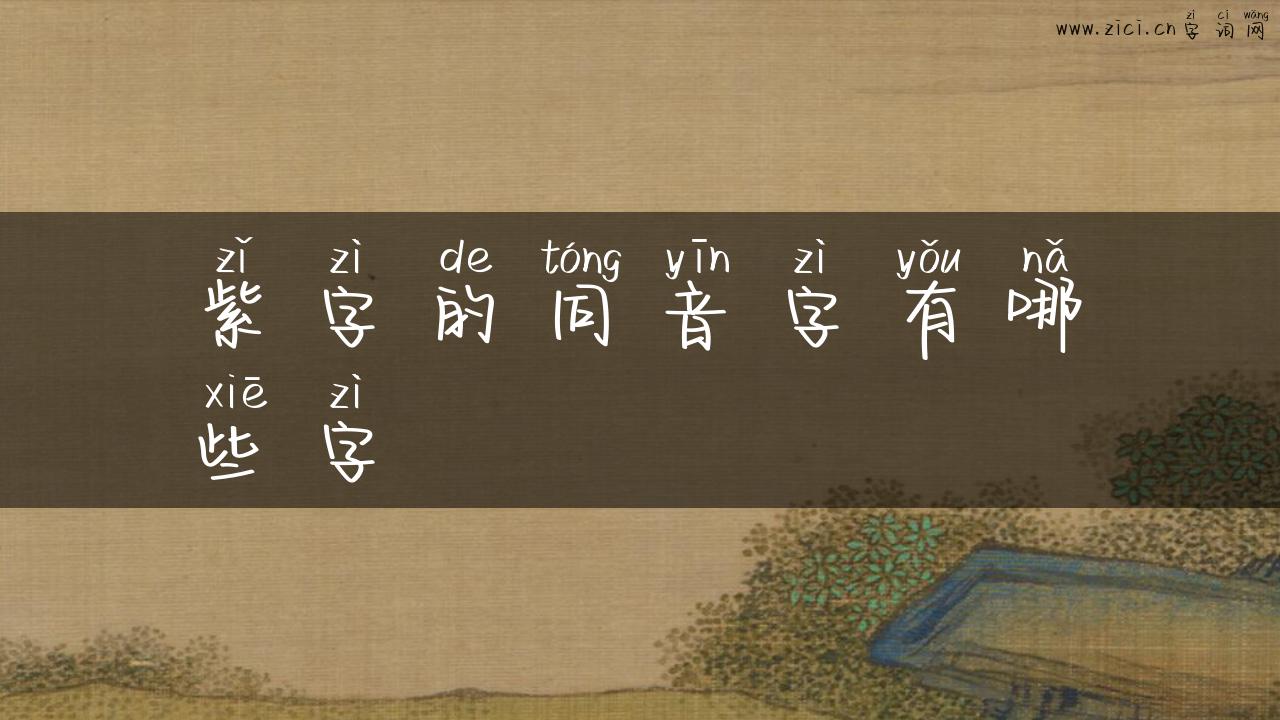 zì cí wǎng
www.zici.cn 字词网
zǐ zì de tóng yīn zì yǒu nǎ
紫字的同音字有哪
xiē zì
些字